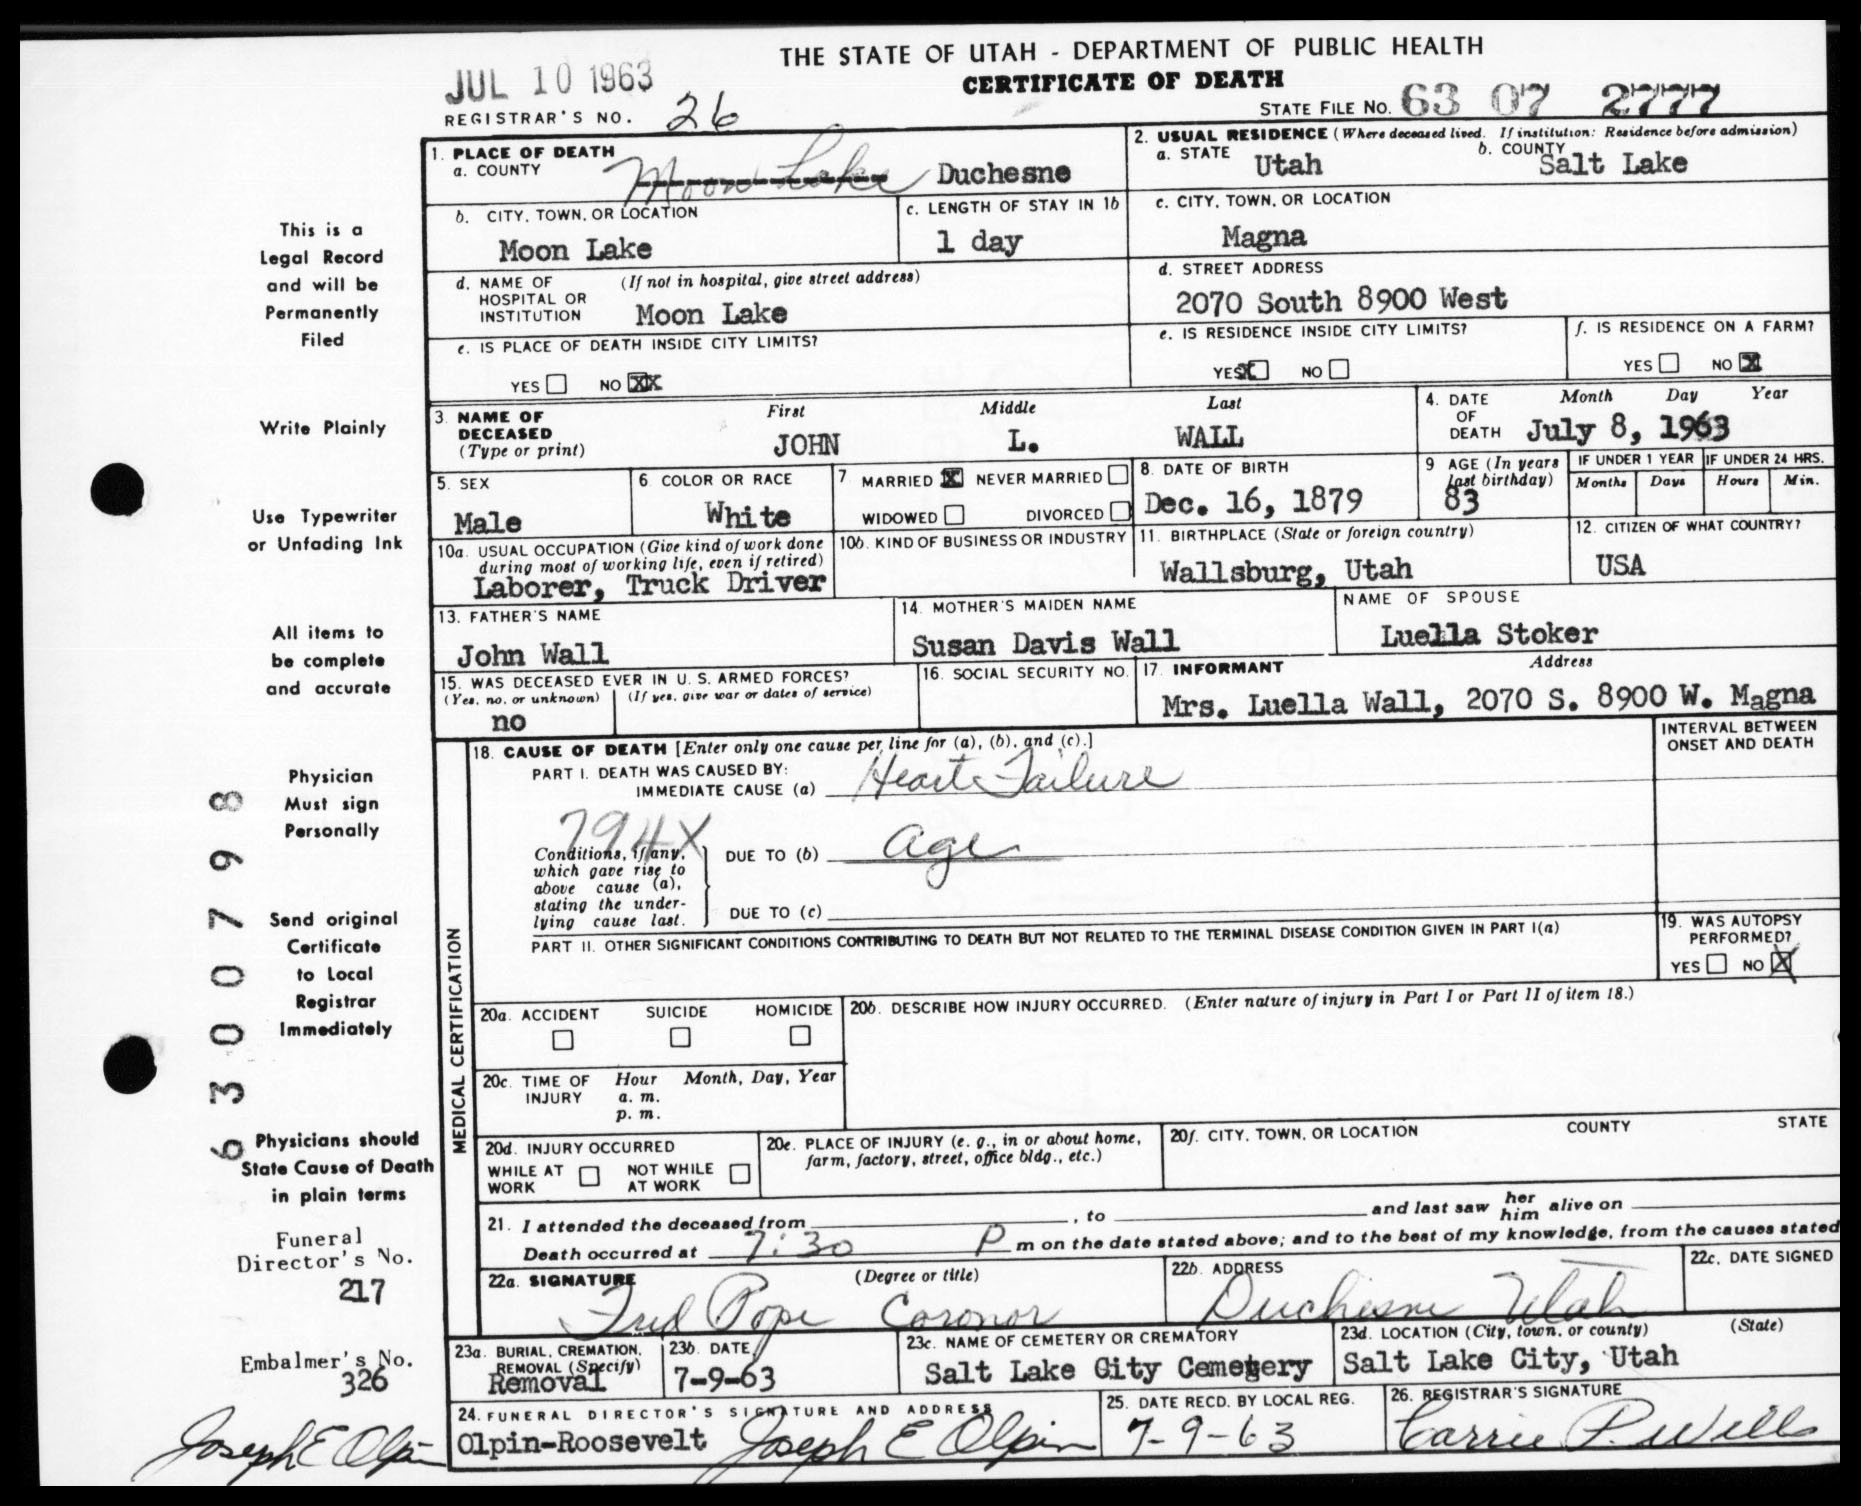 THE STATE OF UTAH - DEPARTMENT OF PUBLIC HEALTH
CERTIFICATE OF DEATH
JUL 10 1963
REGISTRAR'S NO. 26
STATE FILE NO. 63 07 2777
1. PLACE OF DEATH
a. COUNTY Moon Lake Duchesne
2. USUAL RESIDENCE (Where deceased lived. If institution: Residence before admission)
a. STATE Utah b. COUNTY Salt Lake
b. CITY, TOWN, OR LOCATION Moon Lake
c. LENGTH OF STAY IN 1b 1 day
c. CITY, TOWN, OR LOCATION Magna
d. NAME OF HOSPITAL OR INSTITUTION (If not in hospital, give street address) Moon Lake
d. STREET ADDRESS 2070 South 8900 West
e. IS PLACE OF DEATH INSIDE CITY LIMITS?
YES NO XX
e. IS RESIDENCE INSIDE CITY LIMITS?
YES X NO
f. IS RESIDENCE ON A FARM?
YES NO X
3. NAME OF DECEASED (Type or print)
First Middle Last
JOHN L. WALL
4. DATE OF DEATH Month Day Year
July 8, 1963
5. SEX Male
6. COLOR OR RACE White
7. MARRIED X NEVER MARRIED
WIDOWED DIVORCED
8. DATE OF BIRTH Dec. 16, 1879
9 AGE (In years last birthday) 83
IF UNDER 1 YEAR Months Days
IF UNDER 24 HRS. Hours Min.
10a. USUAL OCCUPATION (Give kind of work done during most of working life, even if retired)
Laborer, Truck Driver
10b. KIND OF BUSINESS OR INDUSTRY
11. BIRTHPLACE (State or foreign country)
Wallsburg, Utah
12. CITIZEN OF WHAT COUNTRY?
USA
13. FATHER'S NAME
John Wall
14. MOTHER'S MAIDEN NAME
Susan Davis Wall
NAME OF SPOUSE
Luella Stoker
15. WAS DECEASED EVER IN U.S. ARMED FORCES?
(Yes, no, or unknown) (If yes, give war or dates of service)
no
16. SOCIAL SECURITY NO.
17. INFORMANT Address
Mrs. Luella Wall, 2070 S. 8900 W. Magna
MEDICAL CERTIFICATION
18. CAUSE OF DEATH [Enter only one cause per line for (a), (b), and (c).]
INTERVAL BETWEEN ONSET AND DEATH
PART I. DEATH WAS CAUSED BY:
IMMEDIATE CAUSE (a) Heart Failure
794X
Conditions, if any, which gave rise to above cause (a), stating the underlying cause last.
DUE TO (b) age
DUE TO (c)
PART II. OTHER SIGNIFICANT CONDITIONS CONTRIBUTING TO DEATH BUT NOT RELATED TO THE TERMINAL DISEASE CONDITION GIVEN IN PART I(a)
19. WAS AUTOPSY PERFORMED?
YES NO X
20a. ACCIDENT SUICIDE HOMICIDE
20b. DESCRIBE HOW INJURY OCCURRED. (Enter nature of injury in Part I or Part II of item 18.)
20c. TIME OF INJURY Hour Month, Day, Year
a. m.
p. m.
20d. INJURY OCCURRED
WHILE AT WORK NOT WHILE AT WORK
20e. PLACE OF INJURY (e. g., in or about home, farm, factory, street, office bldg., etc.)
20f. CITY, TOWN, OR LOCATION COUNTY STATE
21. I attended the deceased from , to and last saw her him alive on
Death occurred at 7:30 P m on the date stated above; and to the best of my knowledge, from the causes stated
22a. SIGNATURE (Degree or title)
Fred Pope Coronor
22b. ADDRESS
Duchesne Utah
22c. DATE SIGNED
23a. BURIAL, CREMATION, REMOVAL (Specify)
Removal
23b. DATE
7-9-63
23c. NAME OF CEMETERY OR CREMATORY
Salt Lake City Cemetery
23d. LOCATION (City, town, or county) (State)
Salt Lake City, Utah
24. FUNERAL DIRECTOR'S SIGNATURE AND ADDRESS
Olpin-Roosevelt Joseph E Olpin
25. DATE RECD. BY LOCAL REG.
7-9-63
26. REGISTRAR'S SIGNATURE
Carrie P. Wills
This is a
Legal Record
and will be
Permanently
Filed
Write Plainly
Use Typewriter
or Unfading Ink
All items to
be complete
and accurate
Physician
Must sign
Personally
Send original
Certificate
to Local
Registrar
Immediately
Physicians should
State Cause of Death
in plain terms
6300798
Funeral
Director's No.
217
Embalmer's No.
326
Joseph E Olpin